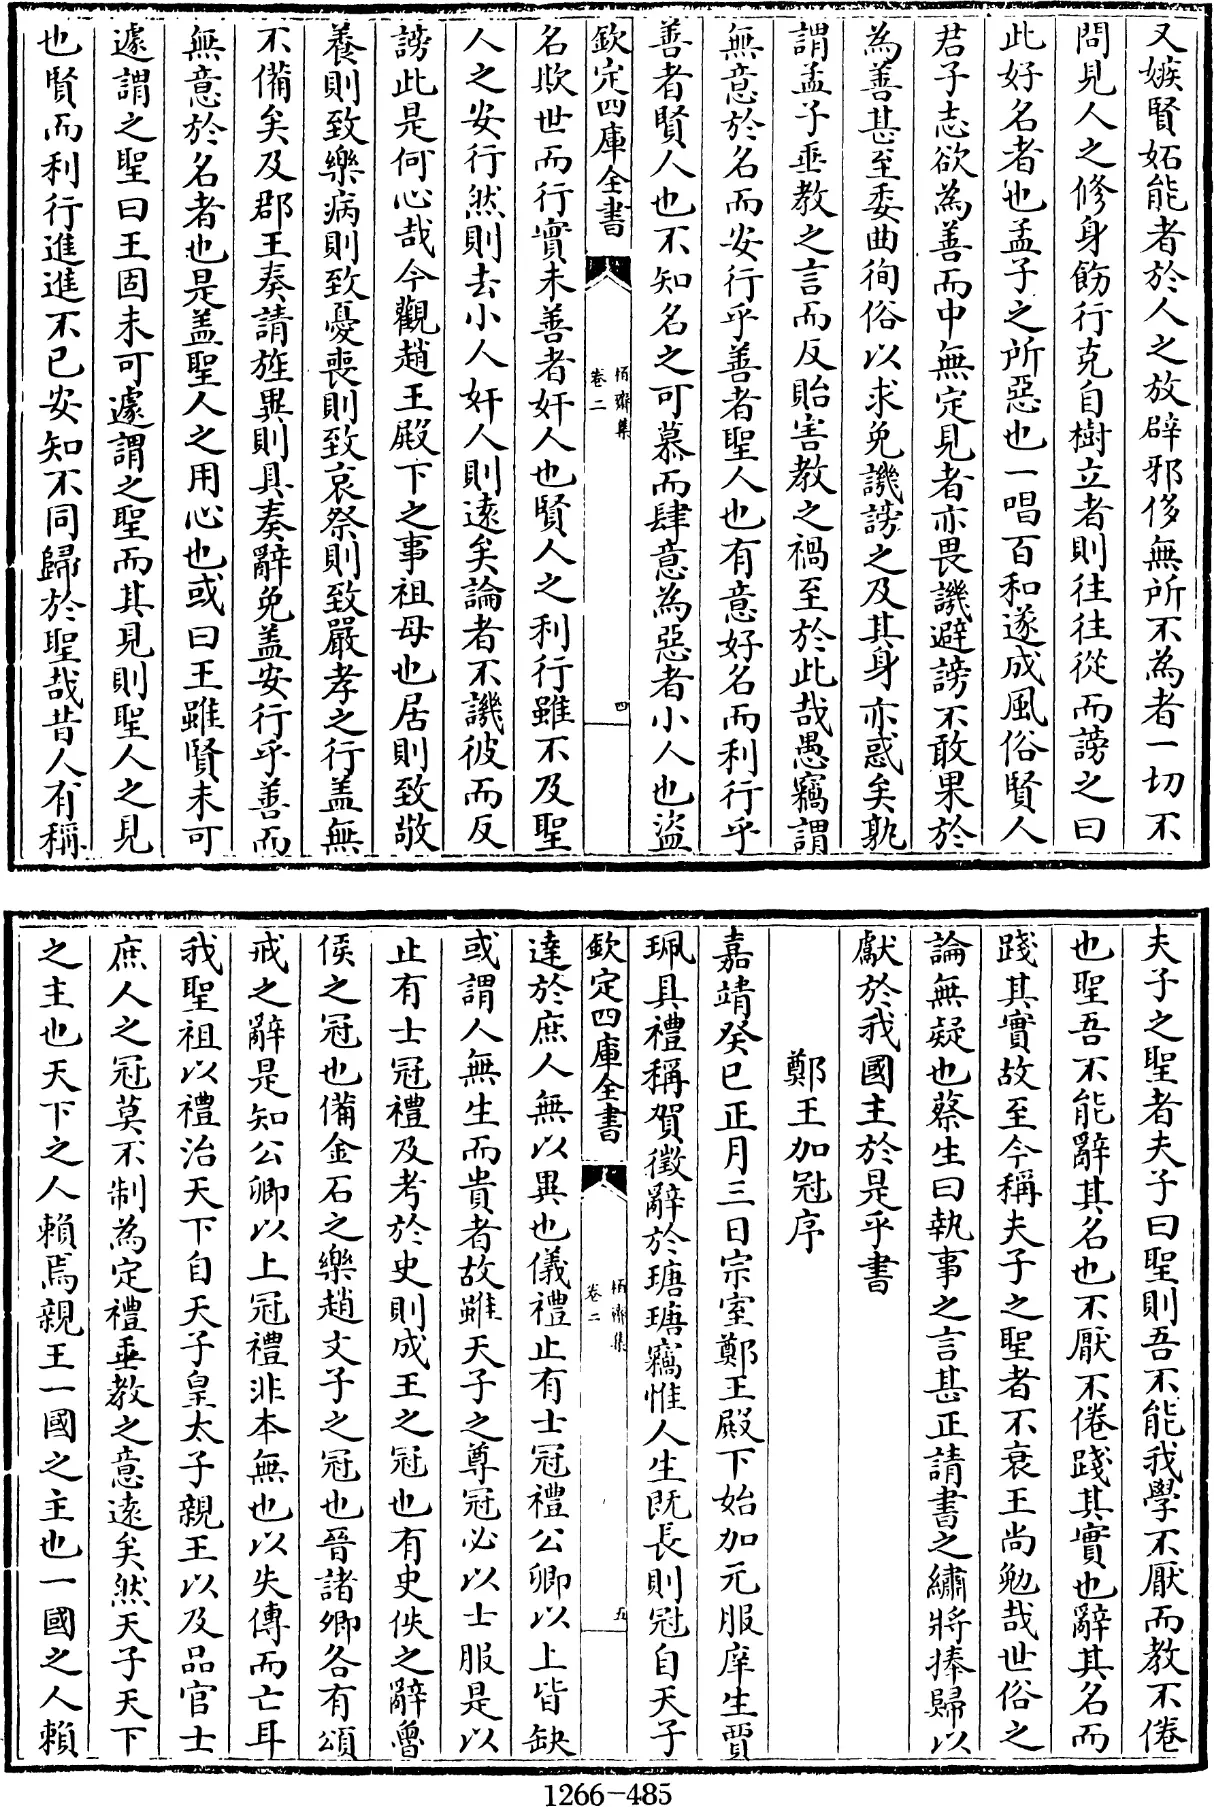 又嫉賢妬能者於人之放辟邪侈無所不為者一切不
問見人之修身飭行克自樹立者則往往從而謗之曰
此好名者也孟子之所惡也一唱百和遂成風俗賢人
君子志欲為善而中無定見者亦畏譏避謗不敢果於
為善甚至委曲徇俗以求免譏謗之及其身亦惑矣孰
謂孟子垂教之言而反貽害教之禍至於此哉愚竊謂
無意於名而安行乎善者聖人也有意好名而利行乎
善者賢人也不知名之可慕而肆意為惡者小人也盜
欽定四庫全書
栢齋集
卷二
四
名欺世而行實未善者奸人也賢人之利行雖不及聖
人之安行然則去小人奸人則遠矣論者不譏彼而反
謗此是何心哉今觀趙王殿下之事祖母也居則致敬
養則致樂病則致憂喪則致哀祭則致嚴孝之行盖無
不備矣及郡王奏請旌異則具奏辭免盖安行乎善而
無意於名者也是盖聖人之用心也或曰王雖賢未可
遽謂之聖曰王固未可遽謂之聖而其見則聖人之見
也賢而利行進進不已安知不同歸於聖哉昔人有稱
夫子之聖者夫子曰聖則吾不能我學不厭而教不倦
也聖吾不能辭其名也不厭不倦踐其實也辭其名而
踐其實故至今稱夫子之聖者不衰王尚勉哉世俗之
論無疑也蔡生曰執事之言甚正請書之繡將捧歸以
獻於我國主於是乎書
鄭王加冠序
嘉靖癸巳正月三日宗室鄭王殿下始加元服庠生賈
珮具禮稱賀徵辭於瑭瑭竊惟人生既長則冠自天子
欽定四庫全書
栢齋集
卷二
五
達於庶人無以異也儀禮止有士冠禮公卿以上皆缺
或謂人無生而貴者故雖天子之尊冠必以士服是以
止有士冠禮及考於史則成王之冠也有史佚之辭魯
侯之冠也備金石之樂趙文子之冠也晉諸卿各有頌
戒之辭是知公卿以上冠禮非本無也以失傳而亡耳
我聖祖以禮治天下自天子皇太子親王以及品官士
庶人之冠莫不制為定禮垂教之意遠矣然天子天下
之主也天下之人賴焉親王一國之主也一國之人賴
1266-485